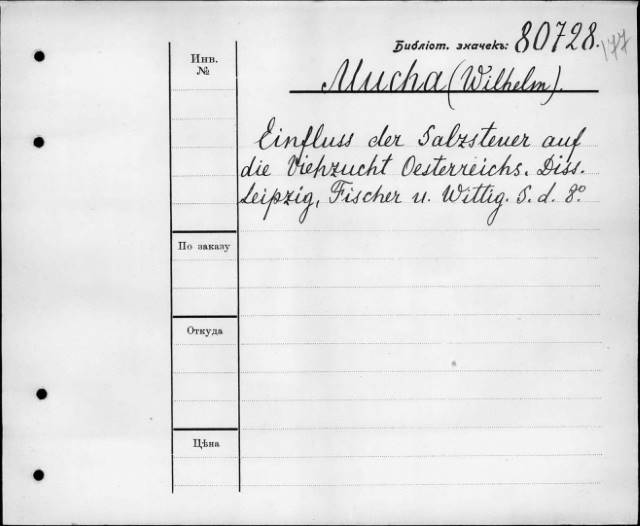 Библіот. значекъ: 80728.
177
Инв.
№
Mucha (Wilhelm).
Einfluss der Salzsteuer auf
die Viehzucht Oesterreichs. Diss.
Leipzig, Fischer u. Wittig. S. d. 8º
По заказу
Откуда
Цѣна